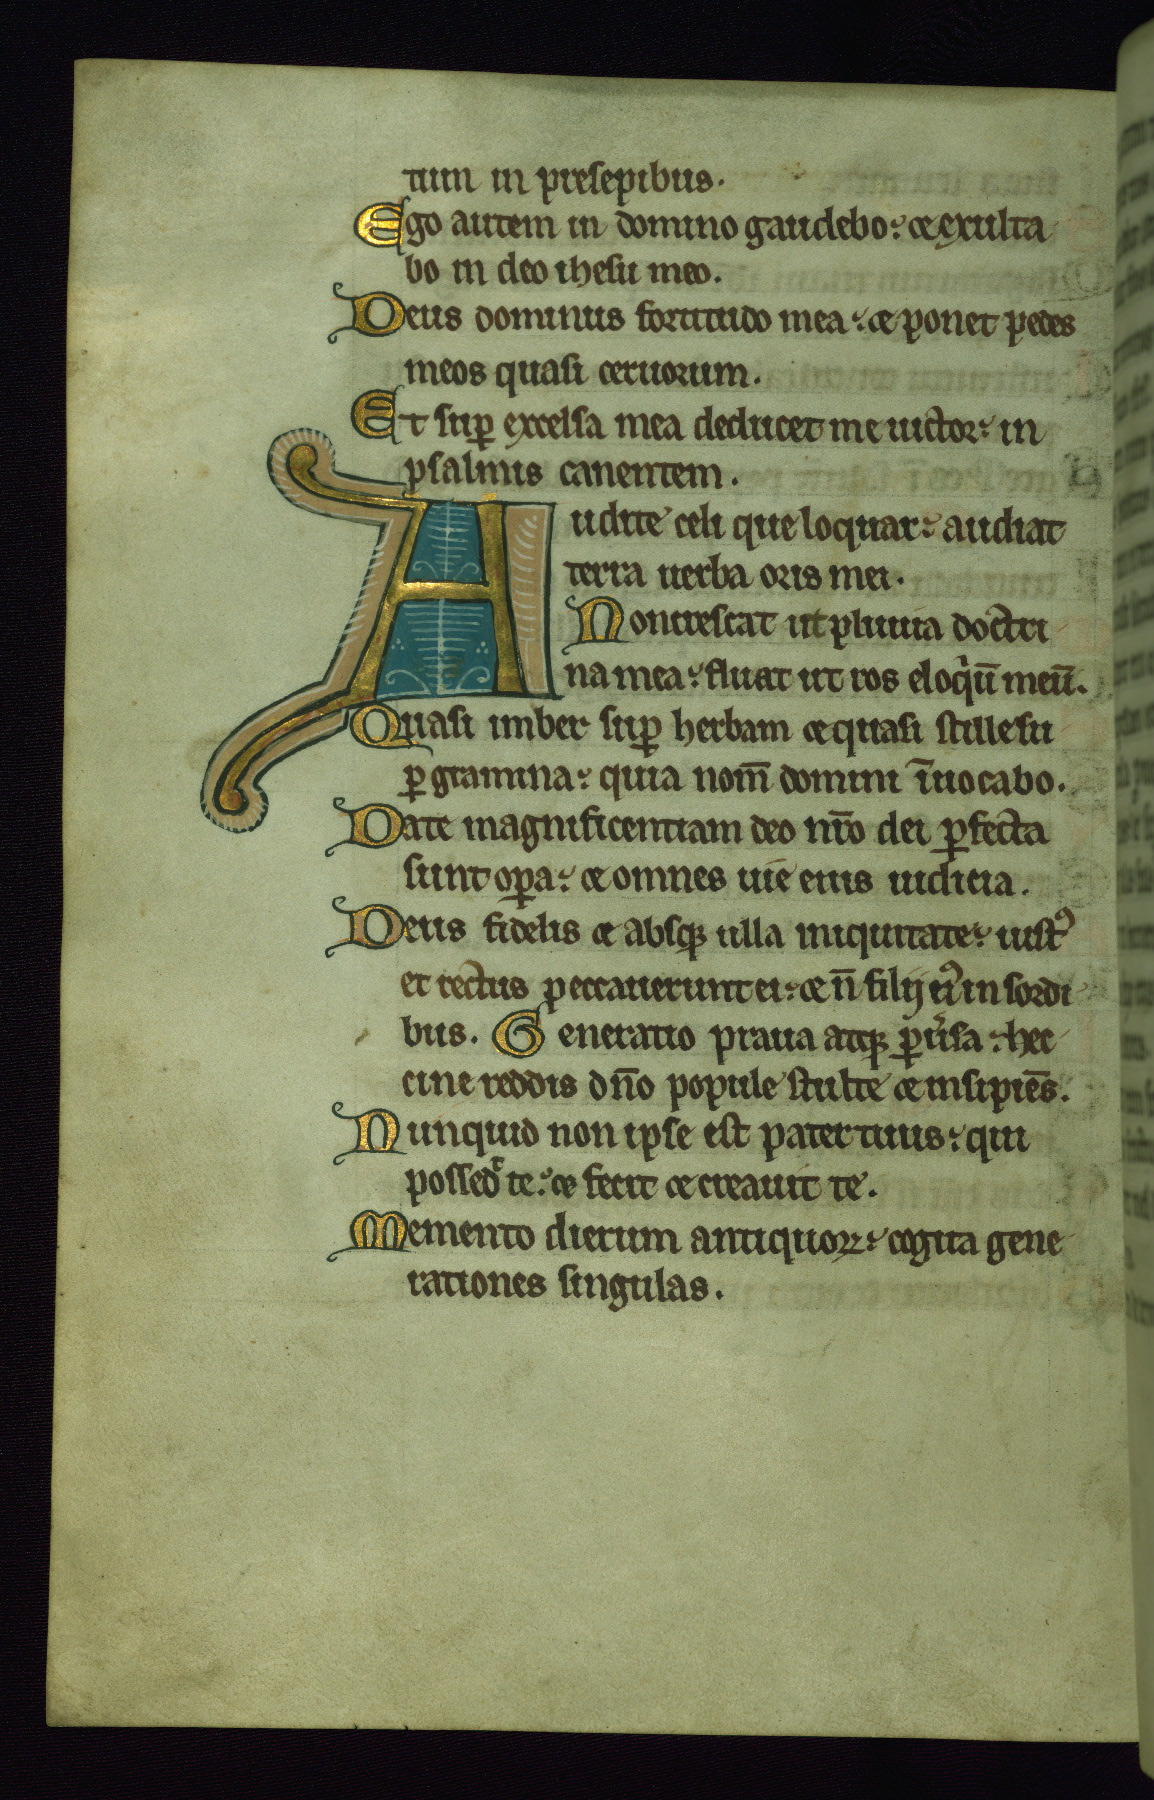 tum in presepibus.
Ego autem in domino gaudebo: & exulta
bo in deo ihesu meo.
Deus dominus fortitudo mea: & ponet pedes
meos quasi ceruorum.
Et sup̱ excelsa mea deducet me uictor: in
psalmis canentem.
Audite celi que loquar: audiat
terra uerba oris mei.
Concrescat ut pluuia doctri
na mea: fluat ut ros eloqͥū meū.
Quasi imber sup̱ herbam & quasi stille su
p̱ gramina: quia nom̄ domini īuocabo.
Date magnificentiam deo nr̄o dei p̱fecta
sunt op̱a: & omnes uie eius iudicia.
Deus fidelis & absqꝫ ulla iniquitate: iustꝰ
et rectus peccauerunt ei: & n̄ filij eiꝰ in sordi
bus. Generatio praua atqꝫ p̱uͥsa: hec
cine reddis dn̄o popule stulte & insipiēs.
Nunquid non ipse est pater tuus: qui
possedͭ te: & fecit & creauit te.
Memento dierum antiquoꝝ: cogita gene
rationes singulas.